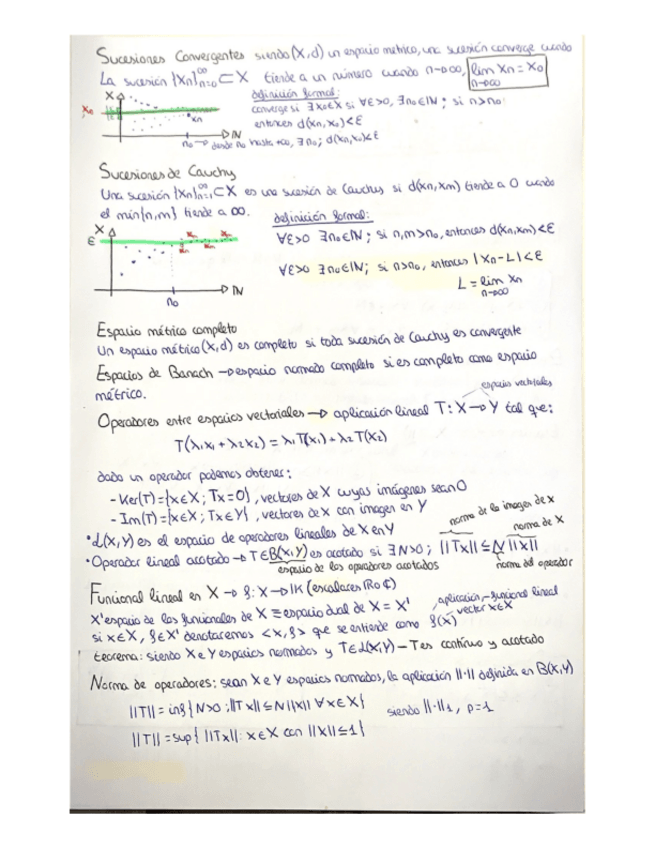 Sucesiones Convergentes siendo (X,d) un espacio metrico, una sucesión converge cuando
La sucesión {Xn}∞n=0 ⊂ X tiende a un número cuando n→∞, lim n→∞ Xn = X0
definición formal:
converge si ∃ X0∈X si ∀ε>0, ∃n0∈ℕ; si n>n0
entonces d(Xn,X0)<ε
X
X0
Xn
ℕ
n0 → desde n0 hasta +∞, ∃ n0; d(Xn,X0)<ε
Sucesiones de Cauchy
Una sucesión {Xn}∞n=1 ⊂ X es una sucesión de Cauchy si d(Xn,Xm) tiende a 0 cuando
el min{n,m} tiende a ∞.
definición formal:
∀ε>0 ∃n0∈ℕ; si n,m>n0, entonces d(Xn,Xm)<ε
∀ε>0 ∃n0∈ℕ; si n>n0, entonces |Xn-L|<ε
L = lim n→∞ Xn
X
ε
ℕ
n0
Espacio métrico completo
Un espacio métrico (X,d) es completo si toda sucesión de Cauchy es convergente
Espacios de Banach → espacio normado completo si es completo como espacio
métrico.
espacios vectoriales
Operadores entre espacios vectoriales → aplicación lineal T: X → Y tal que:
T(λ1x1 + λ2x2) = λ1T(x1) + λ2T(x2)
dado un operador podemos obtener:
- Ker(T)={x∈X; Tx=0}, vectores de X cuyas imágenes sean 0
- Im(T)={x∈X; Tx∈Y}, vectores de X con imagen en Y
norma de la imagen de x
norma de X
• L(X,Y) es el espacio de operadores lineales de X en Y
• Operador lineal acotado → T∈B(X,Y) es acotado si ∃ N>0; ||Tx|| ≤ N||x||
espacio de los operadores acotados
norma del operador
Funcional lineal en X → f: X→𝕂 (escalares ℝ o ℂ)
X' espacio de los funcionales de X ≡ espacio dual de X = X'
aplicación → funcional lineal
vector x∈X
si x∈X, f∈X' denotaremos <x,f> que se entiende como f(x)
teorema: siendo X e Y espacios normados y T∈L(X,Y) – T es continuo y acotado
Norma de operadores: sean X e Y espacios normados, la aplicación ||·|| definida en B(X,Y)
||T|| = inf{N>0; ||Tx|| ≤ N||x|| ∀x∈X}
siendo ||·||1, p=1
||T|| = sup{ ||Tx||: x∈X con ||x|| ≤ 1}